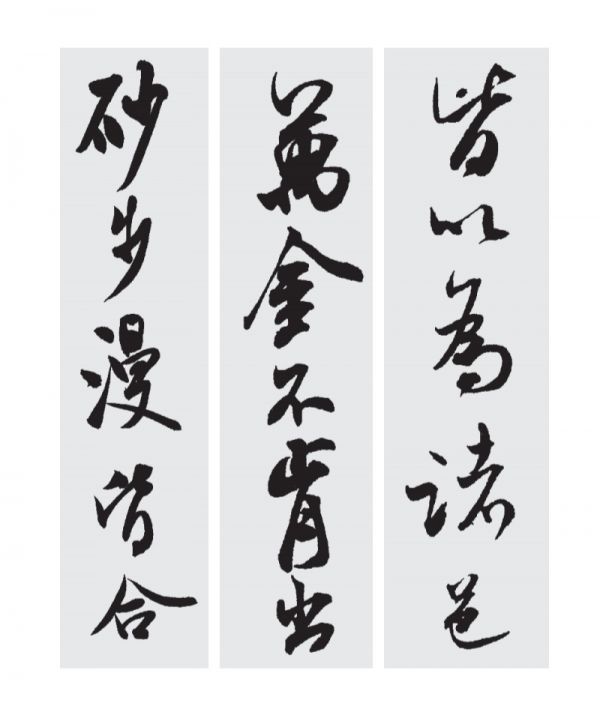 皆以為諸邑
萬金不肯出
砂步漫皆合